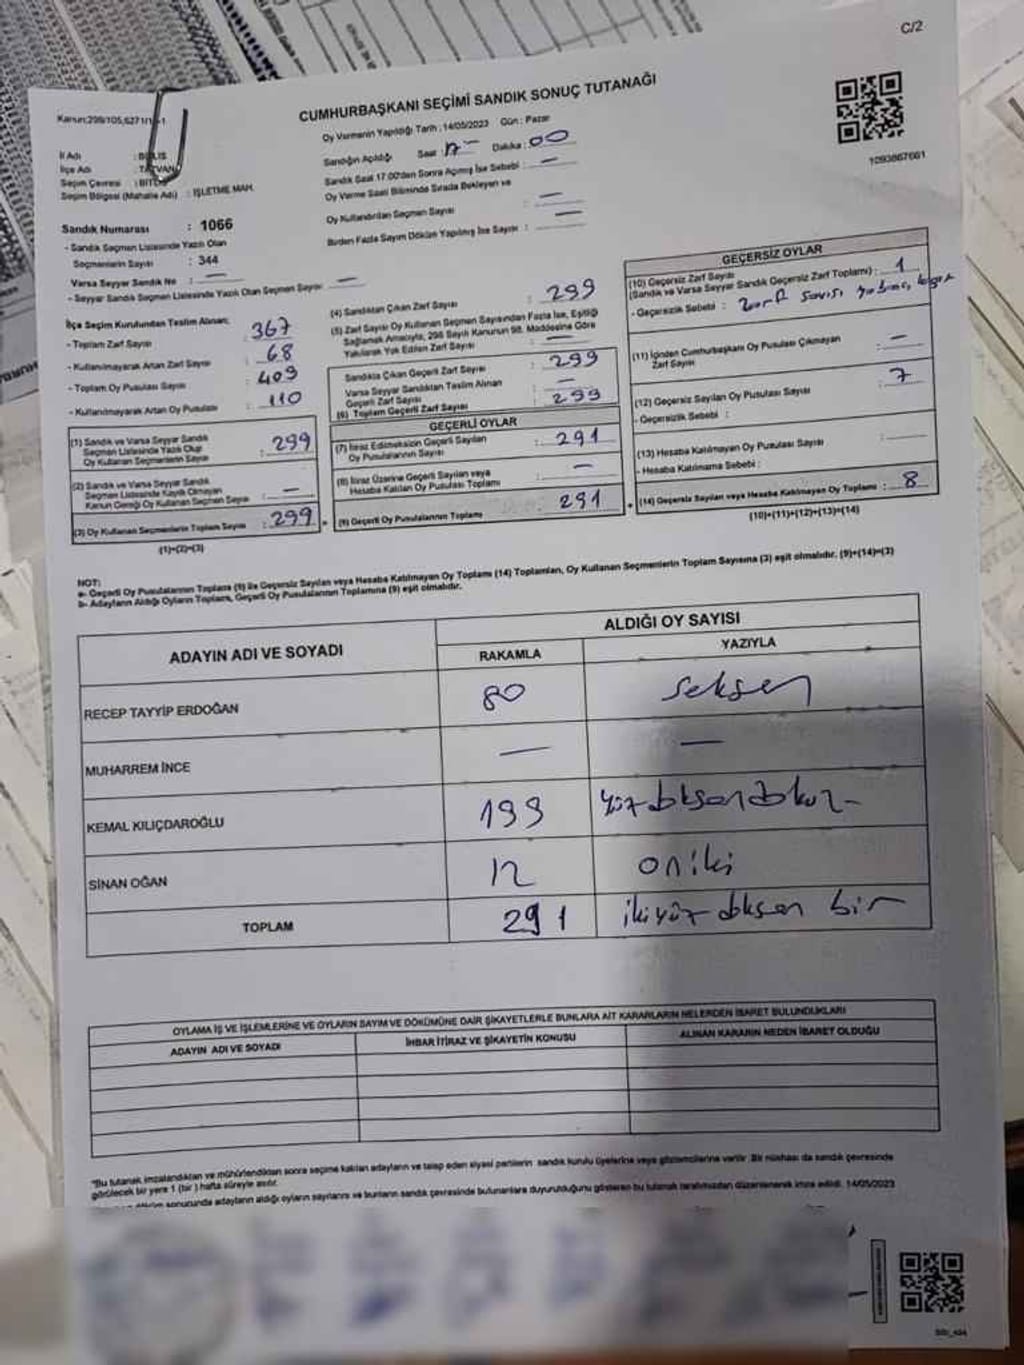 C/2
CUMHURBAŞKANI SEÇİMİ SANDIK SONUÇ TUTANAĞI
Oy Vermenin Yapıldığı Tarih : 14/05/2023 Gün : Pazar
Sandığın Açıldığı Saat 17 Dakika : 00
Sandık Saat 17.00'den Sonra Açılmış İse Sebebi : —
Oy Verme Saati Bitiminde Sırada Bekleyen ve
Oy Kullandırılan Seçmen Sayısı : —
Birden Fazla Sayım Döküm Yapılmış İse Sayısı : —
1093867661
İl Adı
İlçe Adı : TATVAN
Seçim Çevresi : BİTLİS
Seçim Bölgesi (Mahalle Adı) : İŞLETME MAH.
Sandık Numarası : 1066
- Sandık Seçmen Listesinde Yazılı Olan
Seçmenlerin Sayısı : 344
Varsa Seyyar Sandık No : —
- Seyyar Sandık Seçmen Listesinde Yazılı Olan Seçmen Sayısı : —
İlçe Seçim Kurulundan Teslim Alınan;
- Toplam Zarf Sayısı : 367
- Kullanılmayarak Artan Zarf Sayısı : 68
- Toplam Oy Pusulası Sayısı : 409
- Kullanılmayarak Artan Oy Pusulası : 110
(1) Sandık ve Varsa Seyyar Sandık
Seçmen Listesinde Yazılı Olup
Oy Kullanan Seçmenlerin Sayısı : 299
(2) Sandık ve Varsa Seyyar Sandık
Seçmen Listesinde Kayıtlı Olmayan
Kanun Gereği Oy Kullanan Seçmen Sayısı : —
(3) Oy Kullanan Seçmenlerin Toplam Sayısı : 299
(1)+(2)=(3)
(4) Sandıktan Çıkan Zarf Sayısı : 299
(5) Zarf Sayısı Oy Kullanan Seçmen Sayısından Fazla İse, Eşitliği
Sağlamak Amacıyla, 298 Sayılı Kanunun 98. Maddesine Göre
Yakılarak Yok Edilen Zarf Sayısı : —
Sandıkta Çıkan Geçerli Zarf Sayısı : 299
Varsa Seyyar Sandıktan Teslim Alınan
Geçerli Zarf Sayısı : —
(6) Toplam Geçerli Zarf Sayısı : 299
GEÇERLİ OYLAR
(7) İtiraz Edilmeksizin Geçerli Sayılan
Oy Pusulalarının Sayısı : 291
(8) İtiraz Üzerine Geçerli Sayılan veya
Hesaba Katılan Oy Pusulası Toplamı : —
(9) Geçerli Oy Pusulalarının Toplamı : 291
GEÇERSİZ OYLAR
(10) Geçersiz Zarf Sayısı
(Sandık ve Varsa Seyyar Sandık Geçersiz Zarf Toplamı) : 1
- Geçersizlik Sebebi :
(11) İçinden Cumhurbaşkanı Oy Pusulası Çıkmayan
Zarf Sayısı : —
(12) Geçersiz Sayılan Oy Pusulası Sayısı : 7
- Geçersizlik Sebebi :
(13) Hesaba Katılmayan Oy Pusulası Sayısı :
- Hesaba Katılmama Sebebi :
(14) Geçersiz Sayılan veya Hesaba Katılmayan Oy Toplamı : 8
(10)+(11)+(12)+(13)=(14)
NOT:
a- Geçerli Oy Pusulalarının Toplamı (9) ile Geçersiz Sayılan veya Hesaba Katılmayan Oy Toplamı (14) Toplamları, Oy Kullanan Seçmenlerin Toplam Sayısına (3) eşit olmalıdır. (9)+(14)=(3)
b- Adayların Aldığı Oyların Toplamı, Geçerli Oy Pusulalarının Toplamına (9) eşit olmalıdır.
ADAYIN ADI VE SOYADI
ALDIĞI OY SAYISI
RAKAMLA YAZIYLA
RECEP TAYYİP ERDOĞAN 80 seksen
MUHARREM İNCE — —
KEMAL KILIÇDAROĞLU 199 yüz doksan dokuz
SİNAN OĞAN 12 oniki
TOPLAM 291 ikiyüz doksan bir
OYLAMA İŞ VE İŞLEMLERİNE VE OYLARIN SAYIM VE DÖKÜMÜNE DAİR ŞİKAYETLERLE BUNLARA AİT KARARLARIN NELERDEN İBARET BULUNDUKLARI
ADAYIN ADI VE SOYADI İHBAR İTİRAZ VE ŞİKAYETİN KONUSU ALINAN KARARIN NEDEN İBARET OLDUĞU
"Bu tutanak imzalandıktan ve mühürlendikten sonra seçime katılan adayların ve talep eden siyasi partilerin sandık kurulu üyelerine veya gözlemcilerine verilir. Bir nüshası da sandık çevresinde
görülecek bir yere 1 (bir) hafta süreyle asılır.
döküm sonucunda adayların aldığı oyların sayılarını ve bunların sandık çevresinde bulunanlara duyurulduğunu gösteren bu tutanak tarafımızdan düzenlenerek imza edildi. 14/05/2023